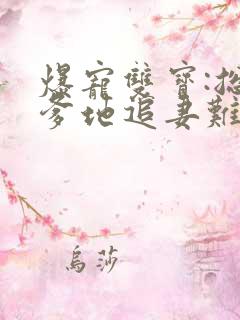 爆寵雙寶:總
爹地追妻難
烏莎